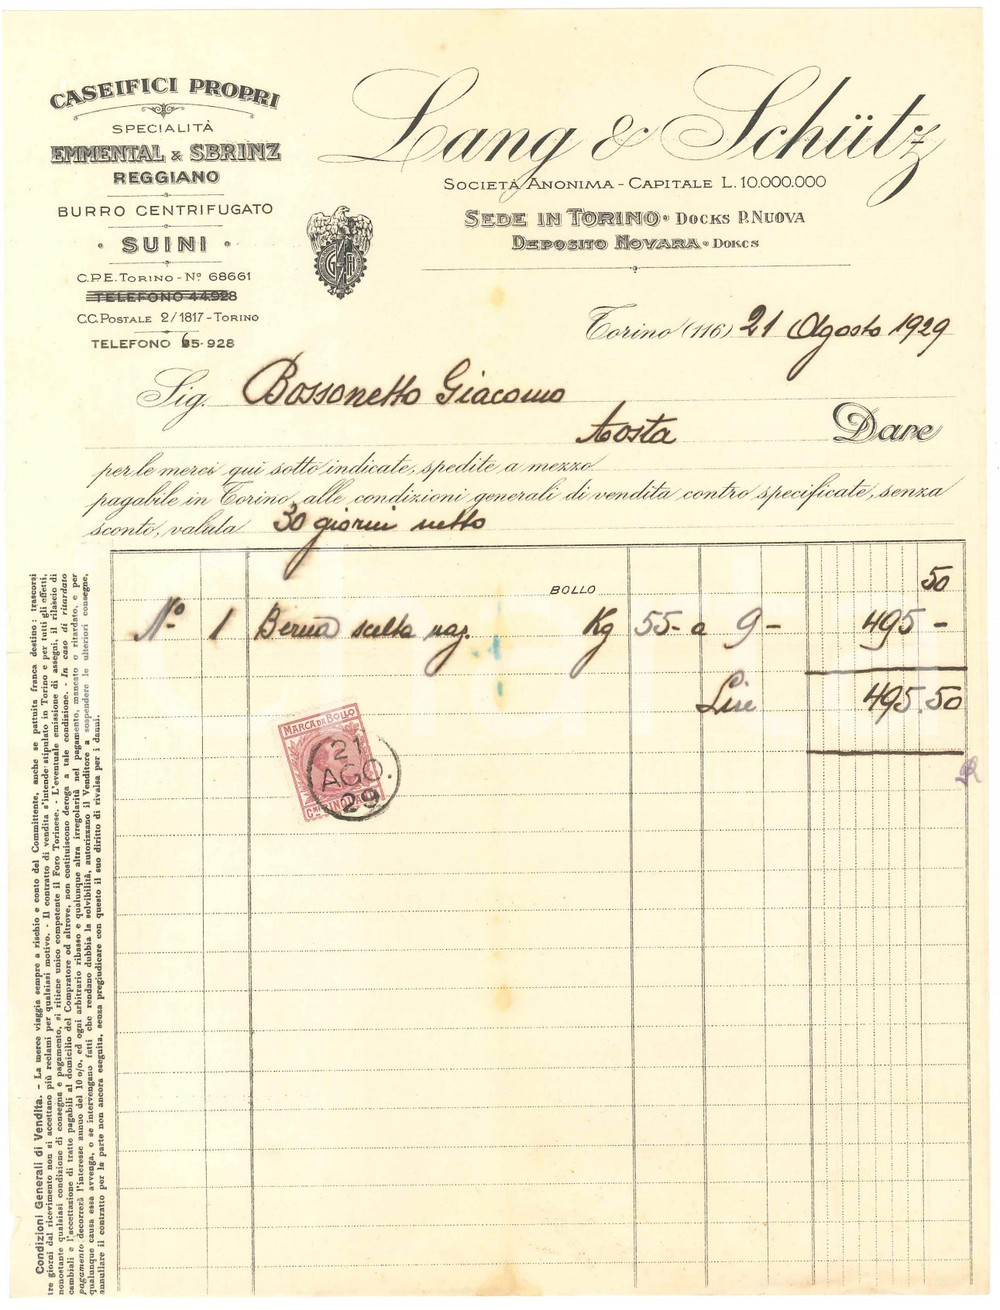 CASEIFICI PROPRI
SPECIALITÀ
EMMENTAL & SBRINZ
REGGIANO
BURRO CENTRIFUGATO
• SUINI •
C.P.E. TORINO - Nº 68661
TELEFONO 44.928
C.C. POSTALE 2/1817 - TORINO
TELEFONO 65-928
Lang & Schütz
SOCIETÀ ANONIMA - CAPITALE L. 10.000.000
SEDE IN TORINO • DOCKS P. NUOVA
DEPOSITO NOVARA • DOKCS
Torino (116) 21 Agosto 1929
Sig. Bossonetto Giacomo
Aosta Dare
per le merci qui sotto indicate, spedite a mezzo
pagabile in Torino, alle condizioni generali di vendita contro specificate, senza
sconto, valuta 30 giorni netto
BOLLO 50
Nº 1 Berna scelta naz. Kg 55- a 9- 495 -
Lire 495.50
MARCA DA BOLLO
21
AGO.
29
Condizioni Generali di Vendita. - La merce viaggia sempre a rischio e conto del Committente, anche se pattuita franca destino: trascorsi
tre giorni dal ricevimento non si accettano più reclami per qualsiasi motivo. - Il contratto di vendita s'intende stipulato in Torino e per tutti gli effetti,
nonostante qualsiasi condizione di consegna e pagamento, si ritiene unico competente il Foro Torinese. - L'eventuale emissione di assegni, il rilascio di
cambiali e l'accettazione di tratte pagabili al domicilio del Compratore od altrove, non costituiscono deroga a tale condizione. - In caso di ritardato
pagamento decorrerà l'interesse annuo del 10 o/o, ed ogni arbitrario ribasso e qualunque altra irregolarità nel pagamento, mancato o ritardato, e per
qualunque causa essa avvenga, o se intervengano fatti che rendano dubbia la solvibilità, autorizzano il Venditore a sospendere le ulteriori consegne,
annullare il contratto per la parte non ancora eseguita, senza pregiudicare con questo il suo diritto di rivalsa per i danni.